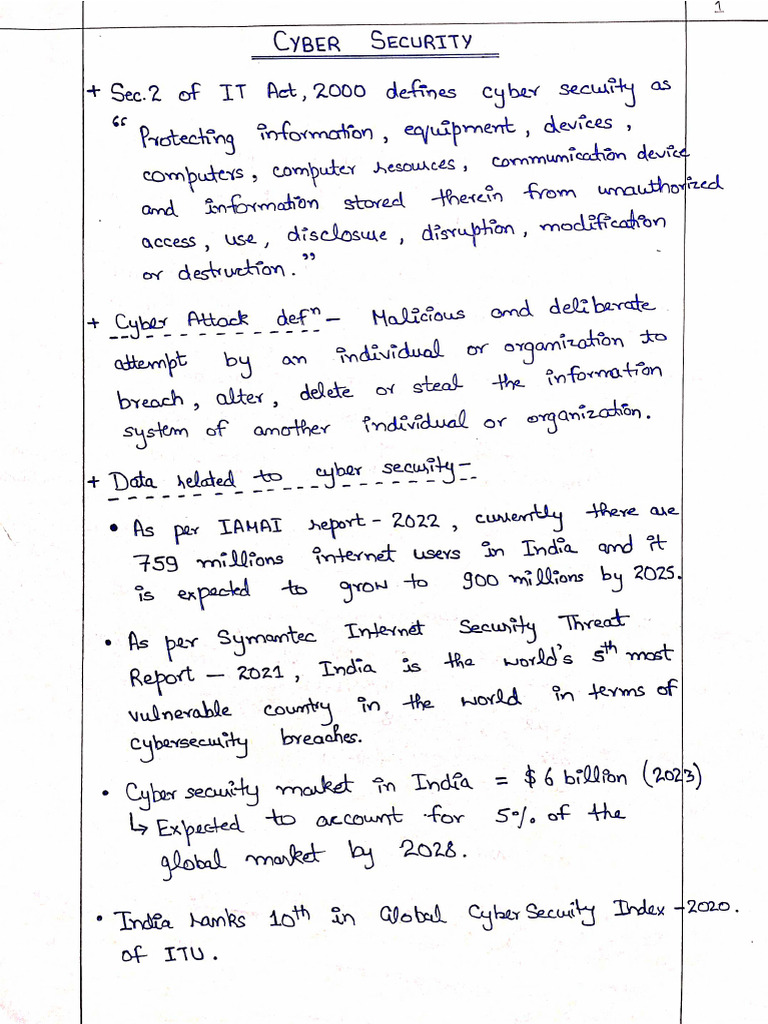 1
CYBER SECURITY
+ Sec.2 of IT Act, 2000 defines cyber security as
“ Protecting information, equipment, devices,
computers, computer resources, communication device
and information stored therein from unauthorized
access, use, disclosure, disruption, modification
or destruction.”
+ Cyber Attack defⁿ – Malicious and deliberate
attempt by an individual or organization to
breach, alter, delete or steal the information
system of another individual or organization.
+ Data related to cyber security–
• As per IAMAI report - 2022, currently there are
759 millions internet users in India and it
is expected to grow to 900 millions by 2025.
• As per Symantec Internet Security Threat
Report – 2021, India is the world's 5th most
vulnerable country in the world in terms of
cybersecurity breaches.
• Cyber security market in India = $ 6 billion (2023)
↳ Expected to account for 5% of the
global market by 2028.
• India ranks 10th in Global CyberSecurity Index -2020.
of ITU.